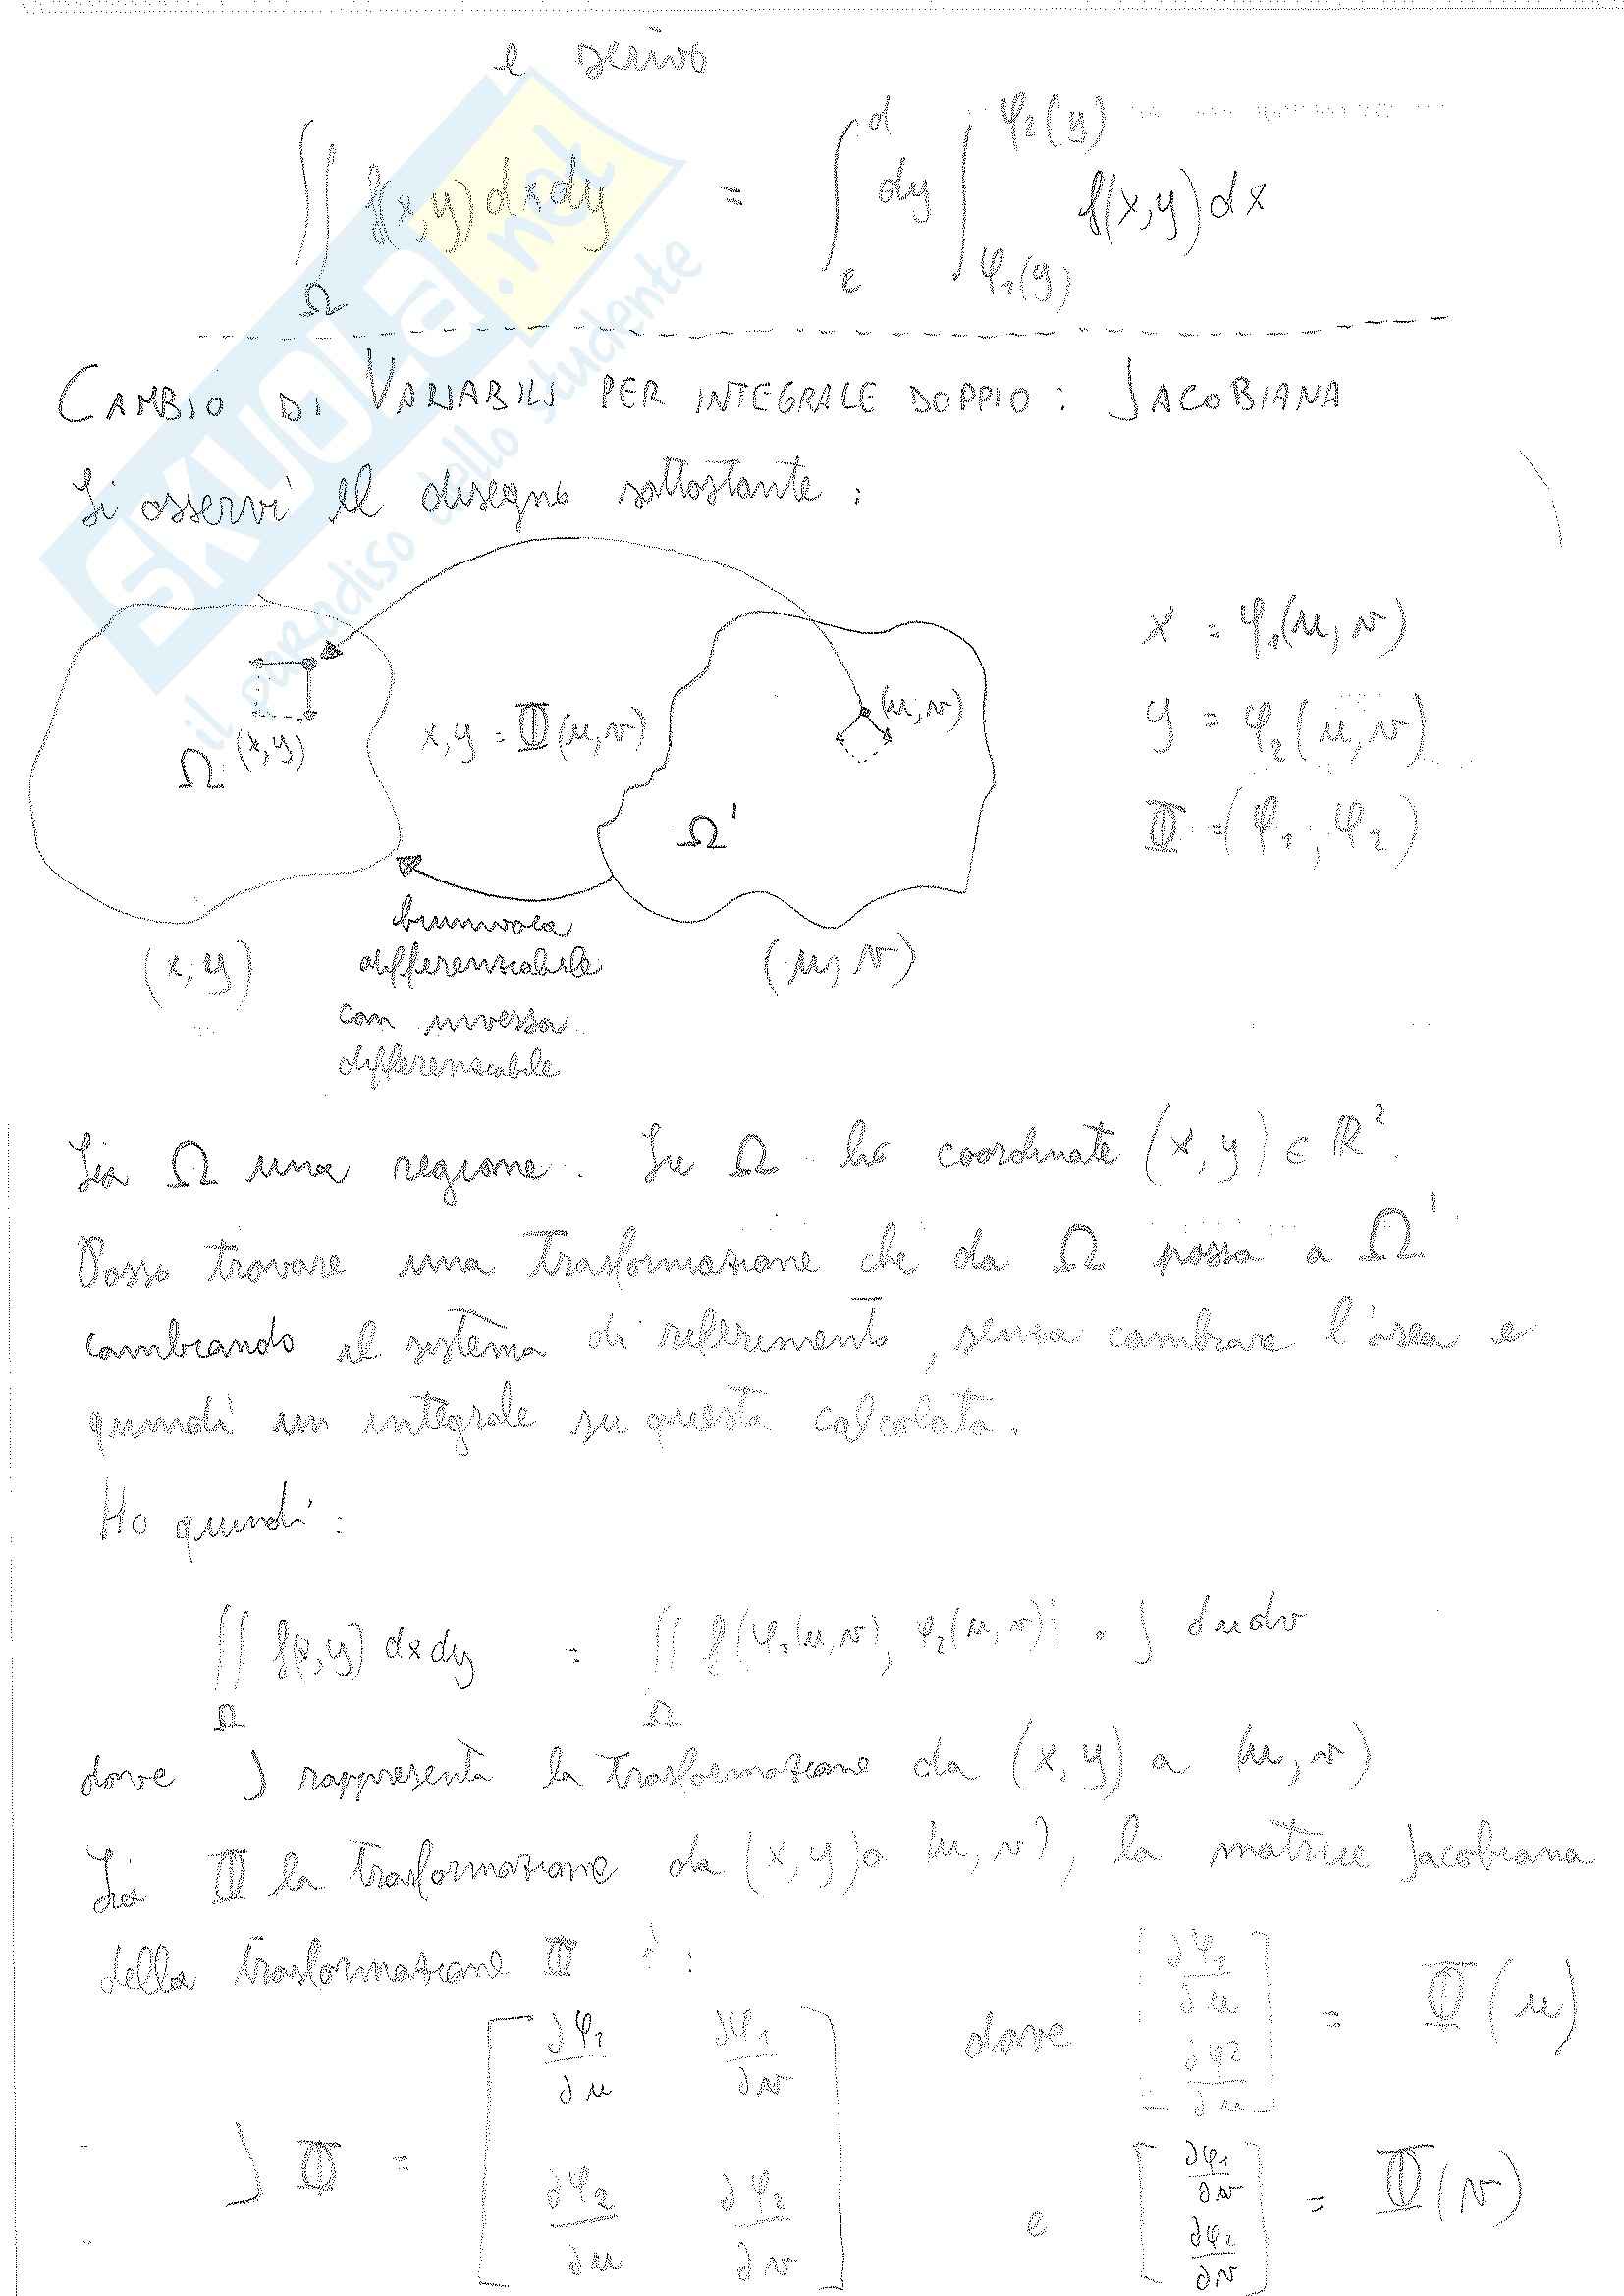 e scrivo
∬_Ω f(x,y) dxdy = ∫_c^d dy ∫_{φ₁(y)}^{φ₂(y)} f(x,y) dx
CAMBIO DI VARIABILI PER INTEGRALE DOPPIO: JACOBIANA
Si osservi il disegno sottostante:
x = φ₁(u,v)
(u,v)
x,y = Φ(u,v)
y = φ₂(u,v)
Ω (x,y)
Ω'
Φ = (φ₁; φ₂)
biunivoca
differenziabile
con inversa
differenziabile
(x,y)
(u,v)
Sia Ω una regione. Su Ω ho coordinate (x,y) ∈ ℝ².
Posso trovare una trasformazione che da Ω passa a Ω'
cambiando il sistema di riferimento, senza cambiare l'area e
quindi un integrale su questa calcolata.
Ho quindi:
∬_Ω f(x,y) dxdy = ∬_Ω f(φ₁(u,v), φ₂(u,v)) · J dudv
dove J rappresenta la trasformazione da (x,y) a (u,v)
Sia Φ la trasformazione da (x,y) a (u,v), la matrice Jacobiana
della trasformazione Φ è:
J Φ = [∂φ₁/∂u ∂φ₁/∂v ; ∂φ₂/∂u ∂φ₂/∂v]
dove [∂φ₁/∂u ; ∂φ₂/∂u] = Φ(u)
e [∂φ₁/∂v ; ∂φ₂/∂v] = Φ(v)
SKUOLA.net
il paradiso dello studente